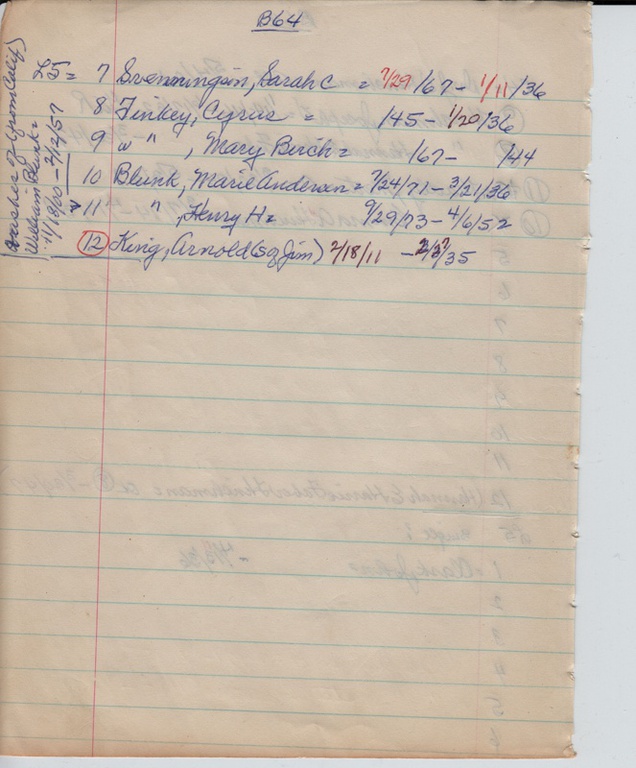 B64
L5 = 7 Svenningsen, Sarah C = 7/29/67 - 1/11/36
8 Finkey, Cyrus = /45 - 1/20/36
9 w " , Mary Birch = /67 - /44
10 Blunk, Marie Andersen = 7/24/71 - 3/21/36
11 " , Henry H = 9/29/73 - 4/6/52
12 King, Arnold (SqJim) 2/18/11 - /35
(Brasher of (from Calif)
William Blunk =
1/18/00 - 2/12/57